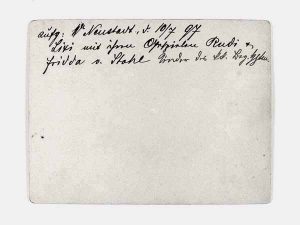 aufg: Wr Neustadt, d. 10/7 97
Lixi mit ihren Gespielen Rudi &
Fridda v. Stahl Kinder des